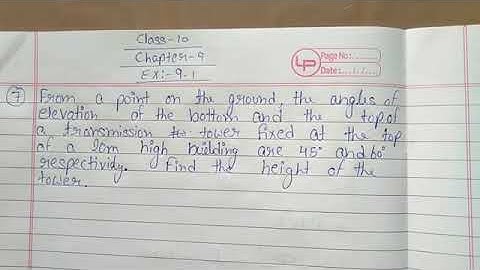 Class-10
Chapter-9
Ex:-9.1
LP
Page No:
Date:
7 From a point on the ground, the angles of
elevation of the bottom and the top of
a transmission tower fixed at the top
of a 20m high building are 45° and 60°
respectively. Find the height of the
tower.